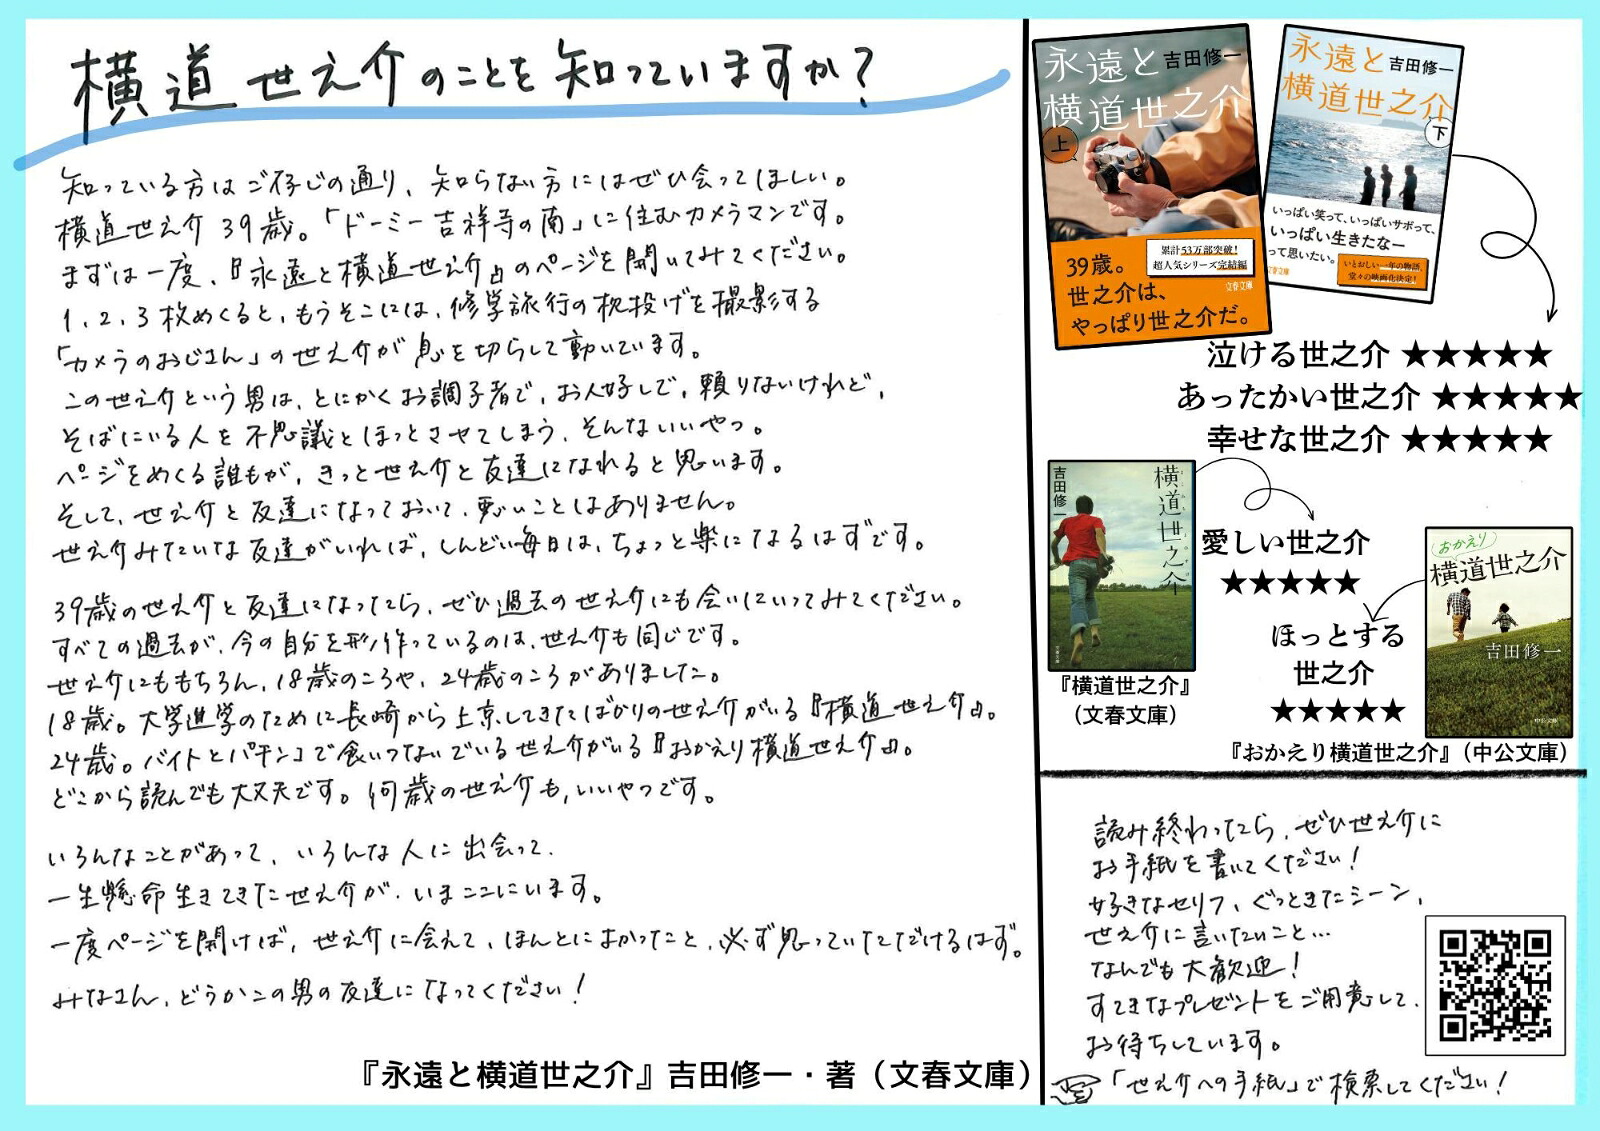 横道世之介のことを知っていますか？
知っている方はご存じの通り、知らない方にはぜひ会ってほしい。
横道世之介 39歳。「ドーミー吉祥寺の南」に住むカメラマンです。
まずは一度、『永遠と横道世之介』のページを開いてみてください。
1、2、3枚めくると、もうそこには、修学旅行の枕投げを撮影する
「カメラのおじさん」の世之介が息を切らして動いています。
この世之介という男は、とにかくお調子者で、お人好しで、頼りないけれど、
そばにいる人を不思議とほっとさせてしまう、そんないいやつ。
ページをめくる誰もが、きっと世之介と友達になれると思います。
そして、世之介と友達になっておいて、悪いことはありません。
世之介みたいな友達がいれば、しんどい毎日は、ちょっと楽になるはずです。
39歳の世之介と友達になったら、ぜひ過去の世之介にも会いにいってみてください。
すべての過去が、今の自分を形作っているのは、世之介も同じです。
世之介にももちろん、18歳のころや、24歳のころがありました。
18歳。大学進学のために長崎から上京してきたばかりの世之介がいる『横道世之介』。
24歳。バイトとパチンコで食いつないでいる世之介がいる『おかえり横道世之介』。
どこから読んでも大丈夫です。何歳の世之介も、いいやつです。
いろんなことがあって、いろんな人に出会って、
一生懸命生きてきた世之介が、いまここにいます。
一度ページを開けば、世之介に会えて、ほんとによかったこと、必ず思っていただけるはず。
みなさん、どうかこの男の友達になってください！
『永遠と横道世之介』吉田修一・著（文春文庫）
永遠と
横道世之介
吉田修一
上
累計53万部突破！
超人気シリーズ完結編
文春文庫
39歳。
世之介は、
やっぱり世之介だ。
永遠と
横道世之介
吉田修一
下
いっぱい笑って、いっぱいサボって、
いっぱい生きたなー
って思いたい。
文春文庫
いとおしい一年の物語、
堂々の映画化決定！
泣ける世之介 ★★★★★
あったかい世之介 ★★★★★
幸せな世之介 ★★★★★
横道世之介
吉田修一
文春文庫
愛しい世之介
★★★★★
『横道世之介』
（文春文庫）
おかえり
横道世之介
吉田修一
中公文庫
ほっとする
世之介
★★★★★
『おかえり横道世之介』（中公文庫）
読み終わったら、ぜひ世之介に
お手紙を書いてください！
好きなセリフ、ぐっときたシーン、
世之介に言いたいこと…
なんでも大歓迎！
すてきなプレゼントをご用意して、
お待ちしています。
「世之介への手紙」で検索してください！